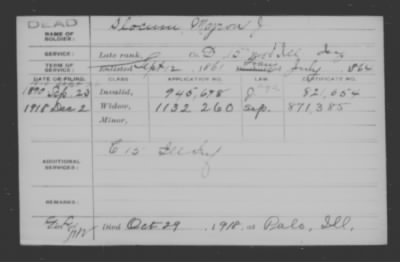 DEAD
NAME OF SOLDIER: Slocum, Myron J.
SERVICE: Late rank, Co. D, 15 Ill Inf
TERM OF SERVICE: Enlisted Sept. 2, 1861 July, 1864
DATE OF FILING. CLASS. APPLICATION NO. LAW. CERTIFICATE NO.
1890 Sep. 23 Invalid, 945,698 821,654
1918 Dec 2 Widow, 1132 260 Sep. 871,385
Minor,
ADDITIONAL SERVICES: C 15 Ill Inf
REMARKS:
Died Oct 29, 1918, at Polo, Ill.